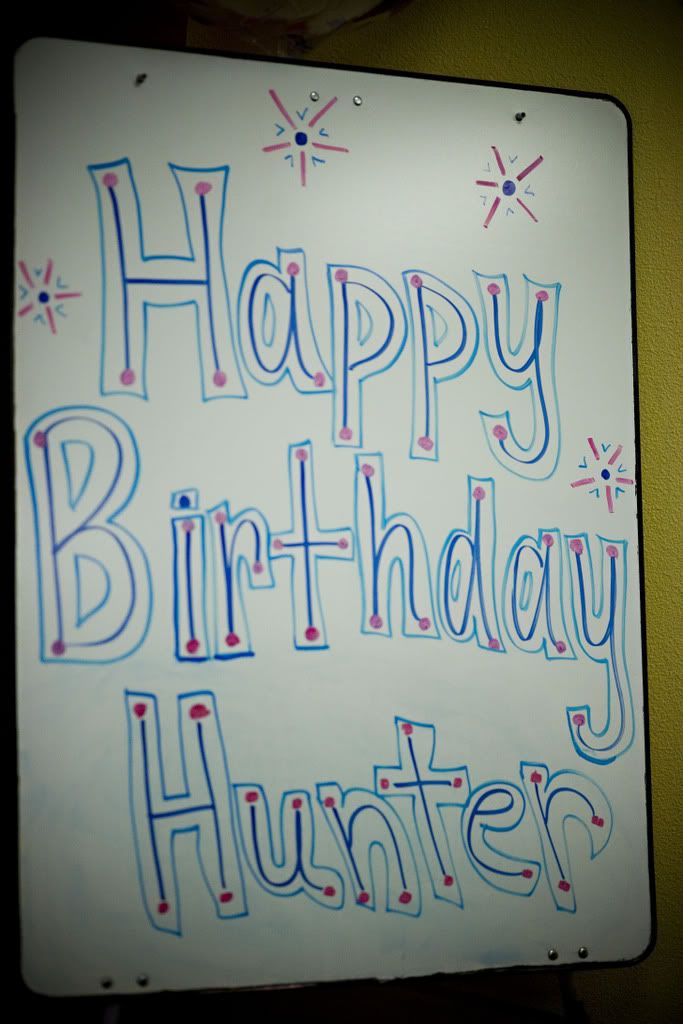 Happy
Birthday
Hunter